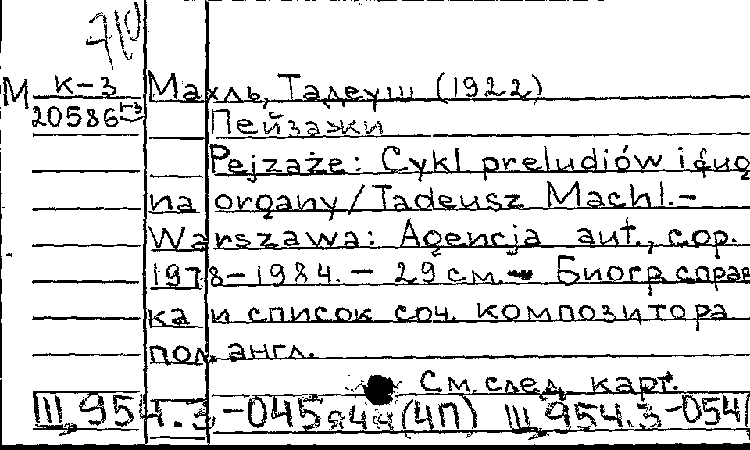 710
М К-3 Махль, Тадеуш (1922)
20586 Г-3 Пейзажи
Pejzaże: Cykl preludiów i fug
na organy/Tadeusz Machl.-
Warszawa: Agencja aut., cop.
1978-1984. - 29 см. - Биогр. справ
ка и список соч. композитора
пол. англ.
См. след. карт.
Ш 954.3-045 (4П) Ш 954.3-054(